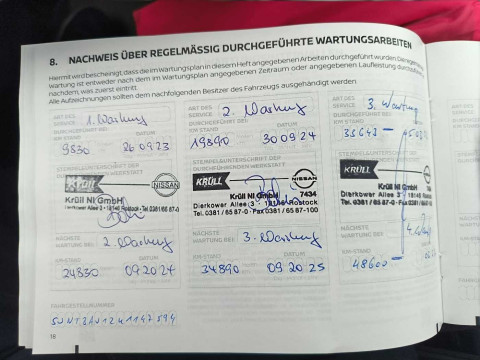 8. NACHWEIS ÜBER REGELMÄSSIG DURCHGEFÜHRTE WARTUNGSARBEITEN
Hiermit wird bescheinigt, dass die im Wartungsplan in diesem Heft angegebenen Arbeiten durchgeführt wurden. Die
Wartung ist entweder nach dem im Wartungsplan angegebenen Zeitraum oder angegebenen Laufleistung durchzuführen
nachdem, was zuerst eintritt
Alle Aufzeichnungen sollten dem nachfolgenden Besitzer des Fahrzeugs ausgehändigt werden
ART DES
SERVICE
1. Wartung
DURCHGEFÜHRT BEI
KM STAND
DATUM
9830
26 09 23
KRÜLL
NISSAN
Krüll NI GmbH
Dierkower Allee 3 · 18146 Rostock
Tel. 0381/65 87-0
NÄCHSTE
WARTUNG BEI
2. Wartung
KM-STAND
DATUM
24830
09.2024
ART DES
SERVICE
2. Wartung
DURCHGEFÜHRT BEI
KM STAND
DATUM
19890
30 09 24
STEMPEL/UNTERSCHRIFT DER
DURCHFÜHRENDEN WERKSTATT
KRÜLL
NISSAN
7434
Krüll NI GmbH
Dierkower Allee 3 · 18146 Rostock
Tel. 0381/65 87-0 · Fax 0381/6587-100
NÄCHSTE
WARTUNG BEI
3. Wartung
KM-STAND
DATUM
34890
09.2025
ART DES
SERVICE
3. Wartung
DURCHGEFÜHRT BEI
KM STAND
STEMPEL/UNTERSCHRIFT DER
KRÜLL
Krüll NI GmbH
Dierkower Allee 3
Tel. 0381/65 87-0
NÄCHSTE
WARTUNG BEI
KM-STAND
48600
FAHRGESTELLNUMMER
18